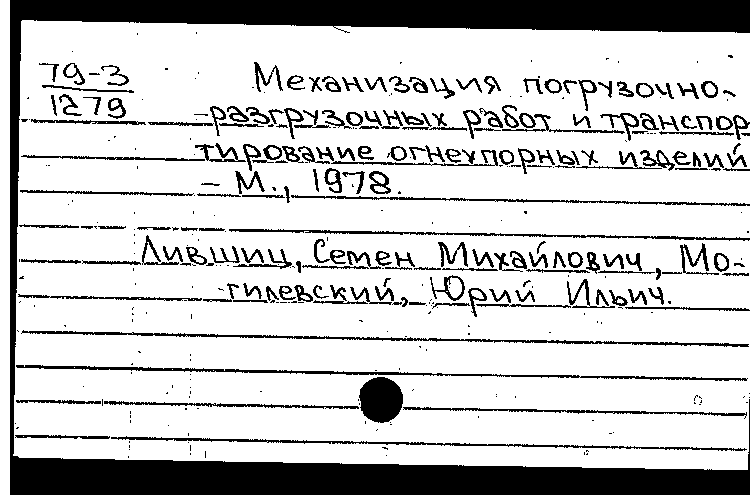 79-3
1279
Механизация погрузочно-
-разгрузочных работ и транспор
тирование огнеупорных изделий
- М., 1978.
Лившиц, Семен Михайлович, Мо-
гилевский, Юрий Ильич.